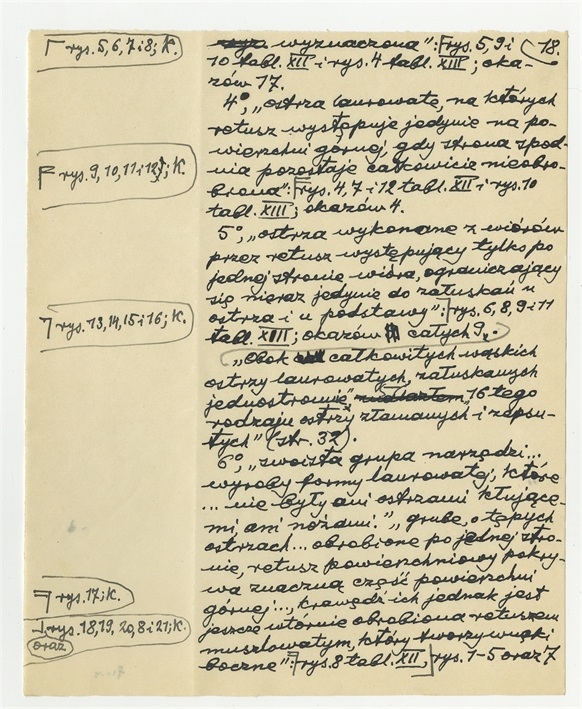 18.
rys. 5, 6, 7 i 8; K.
wyznaczona": rys. 5, 9 i
10 tabl. XII i rys. 4 tabl. XIII; oka-
zów 17.
4°, „ostrza laurowate, na których
retusz występuje jedynie na po-
wierzchni górnej, gdy strona spod-
nia pozostaje całkowicie nieobro-
biona": rys. 4, 7 i 12 tabl. XII i rys. 10
tabl. XIII; okazów 4.
rys. 9, 10, 11 i 12; K.
5°, „ostrza wykonane z wiórów
przez retusz występujący tylko po
jednej stronie wióra, ograniczający
się nieraz jedynie do załuskań u
ostrza i u podstawy": rys. 6, 8, 9 i 11
tabl. XIII; okazów całych 9.
rys. 13, 14, 15 i 16; K.
„Obok całkowitych wąskich
ostrzy laurowatych, załuskanych
jednostronnie" 16 tego
rodzaju ostrzy złamanych i zepsu-
tych" (str. 32).
6°, „swoista grupa narzędzi...
wyroby formy laurowatej, które
... nie były ani ostrzami kłujące-
mi, ani nożami." „grube, o tępych
ostrzach... obrobione po jednej stro-
nie, retusz powierzchniowy pokry-
wa znaczną część powierzchni
górnej..., krawędź ich jednak jest
jeszcze wtórnie obrobiona retuszem
muszlowatym, który tworzy wąski
boczne": rys. 8 tabl. XII, rys. 1-5 oraz 7
rys. 17; K.
rys. 18, 19, 20, 8 i 21; K.
oraz